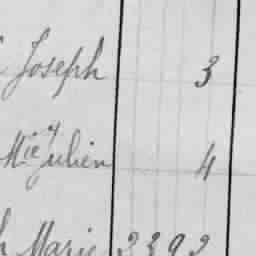 Joseph 3
Mie Julien 4
h Marie 2392